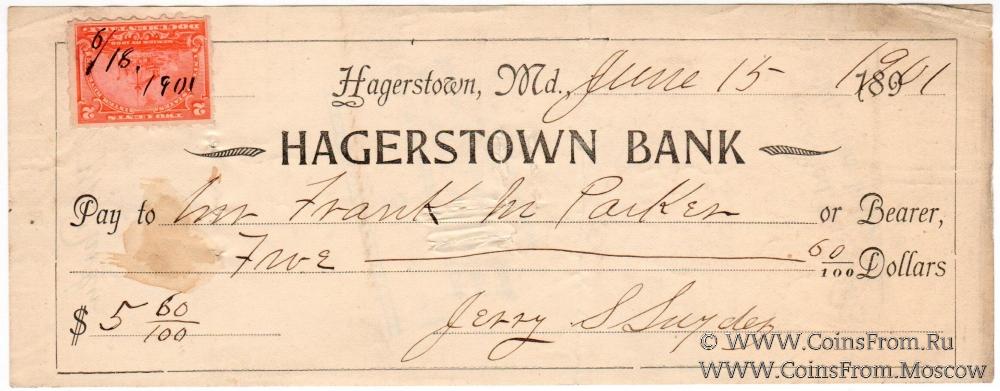 6/18.
1901
DOCUMENTARY
2 TWO CENTS 2
Hagerstown, Md. June 15 1901 189
HAGERSTOWN BANK
Pay to Mr Frank M Parker or Bearer,
Five 60/100 Dollars
$ 5 60/100
Jerry S Snyder
© WWW.CoinsFrom.Ru
WWW.CoinsFrom.Moscow